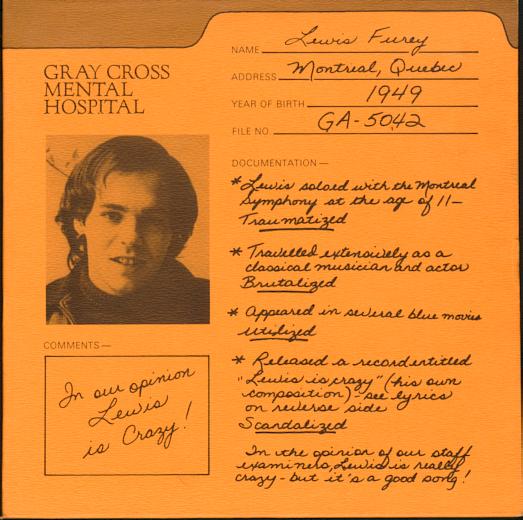 GRAY CROSS
MENTAL
HOSPITAL
NAME Lewis Furey
ADDRESS Montreal, Quebec
YEAR OF BIRTH 1949
FILE NO. GA-5042
DOCUMENTATION—
* Lewis soloed with the Montreal
Symphony at the age of 11—
Traumatized
* Travelled extensively as a
classical musician and actor
Brutalized
* Appeared in several blue movies
Utilized
* Released a record entitled
"Lewis is crazy" (his own
composition)-see lyrics
on reverse side
Scandalized
In the opinion of our staff
examiners, Lewis is really
crazy-but it's a good song!
COMMENTS—
In our opinion
Lewis
is Crazy!